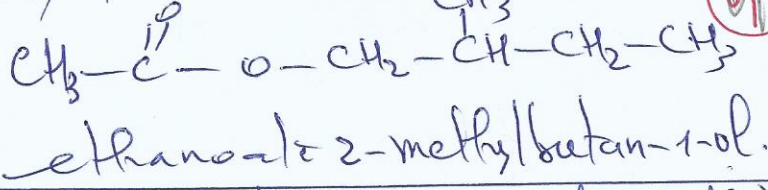 O CH3
CH3-C-O-CH2-CH-CH2-CH3
ethanoate 2-methylbutan-1-ol.